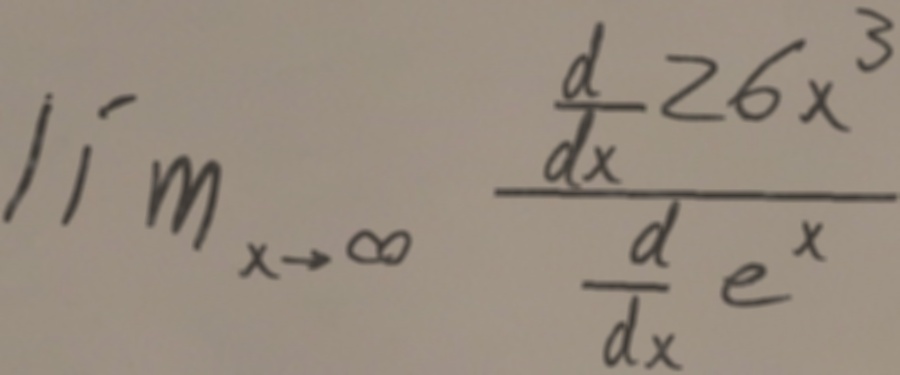 \lim_{x \to \infty} \frac{\frac{d}{dx} 26x^3}{\frac{d}{dx} e^x}